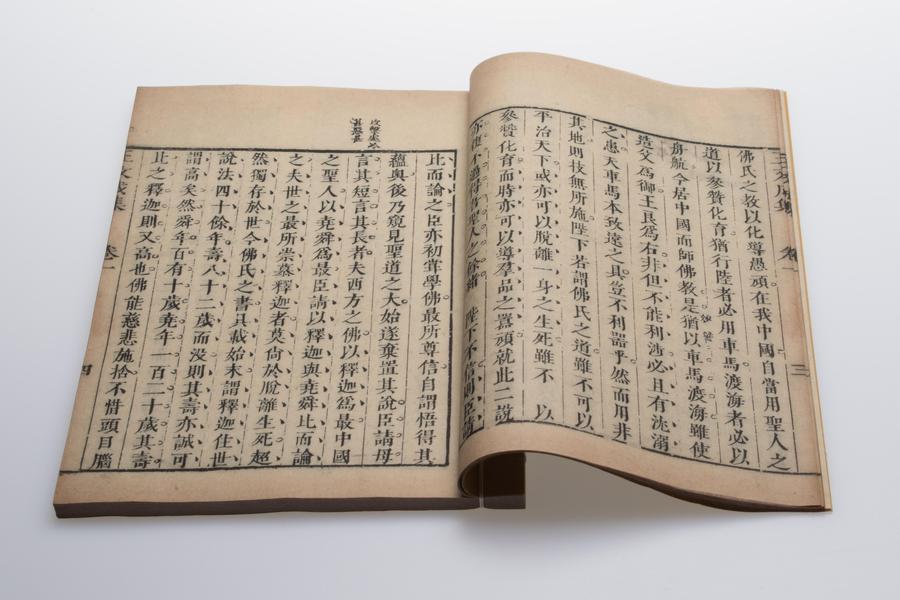 佛氏之教以化導愚頑在我中國自當用聖人之
道以參贊化育猶行陸者必用車馬渡海者必以
舟航今居中國而師佛教是猶以車馬渡海雖使
造父為御王良為右非但不能利涉必且有沈溺
之患夫車馬本致遠之具豈不利器乎然而用非
其地則技無所施陛下若謂佛氏之道雖不可以
平治天下或亦可以脫離一身之生死雖不 以
參贊化育而時亦可以導羣品之嚚頑就此二說
亦復不過得 聖人之餘緒 陛下不信 臣請
比而論之臣亦初嘗學佛最所尊信自謂悟得其
蘊奧後乃窺見聖道之大始遂棄置其說臣請毋
言其短言其長者夫西方之佛以釋迦為最中國
之聖人以堯舜為最臣請以釋迦與堯舜比而論
之夫世之最所崇慕釋迦者莫尚於脫離生死超
然獨存於世今佛氏之書具載始末謂釋迦住世
說法四十餘年壽八十二歲而沒則其壽亦誠可
謂高矣然舜年百有十歲堯年一百二十歲其壽
比之釋迦則又高也佛能慈悲施捨不惜頭目腦
卷一
四
三